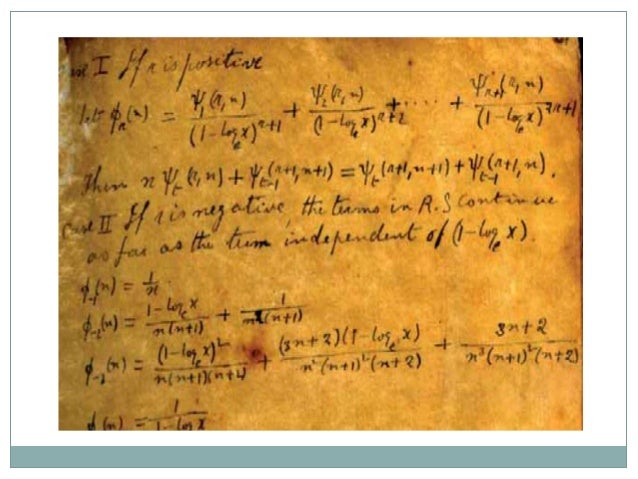 Case I If r is positive
let φ_r(n) = ψ_1(r,n)/(1-log_e x)^{r+1} + ψ_2(r,n)/(1-log_e x)^{r+2} + .... + ψ_{r+1}(r,n)/(1-log_e x)^{2r+1}
Then n ψ_t(r,n) + ψ_{t-1}(r+1,n+1) = ψ_t(r+1,n+1) + ψ_{t-1}(r+1,n).
Case II If r is negative, the terms in R.S continue
as far as the term independent of (1-log_e x).
φ_{-1}(n) = 1/n.
φ_{-2}(n) = (1-log_e x)/(n(n+1)) + 1/((n+1))
φ_{-3}(n) = (1-log_e x)^2/(n(n+1)(n+2)) + (3n+2)(1-log_e x)/(n^2(n+1)^2(n+2)) + (3n+2)/(n^3(n+1)^2(n+2))
φ(n) = 1/(1-log x